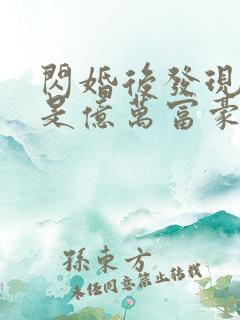 閃婚後發現
是億萬富豪
孫東方
未經同意禁止轉載